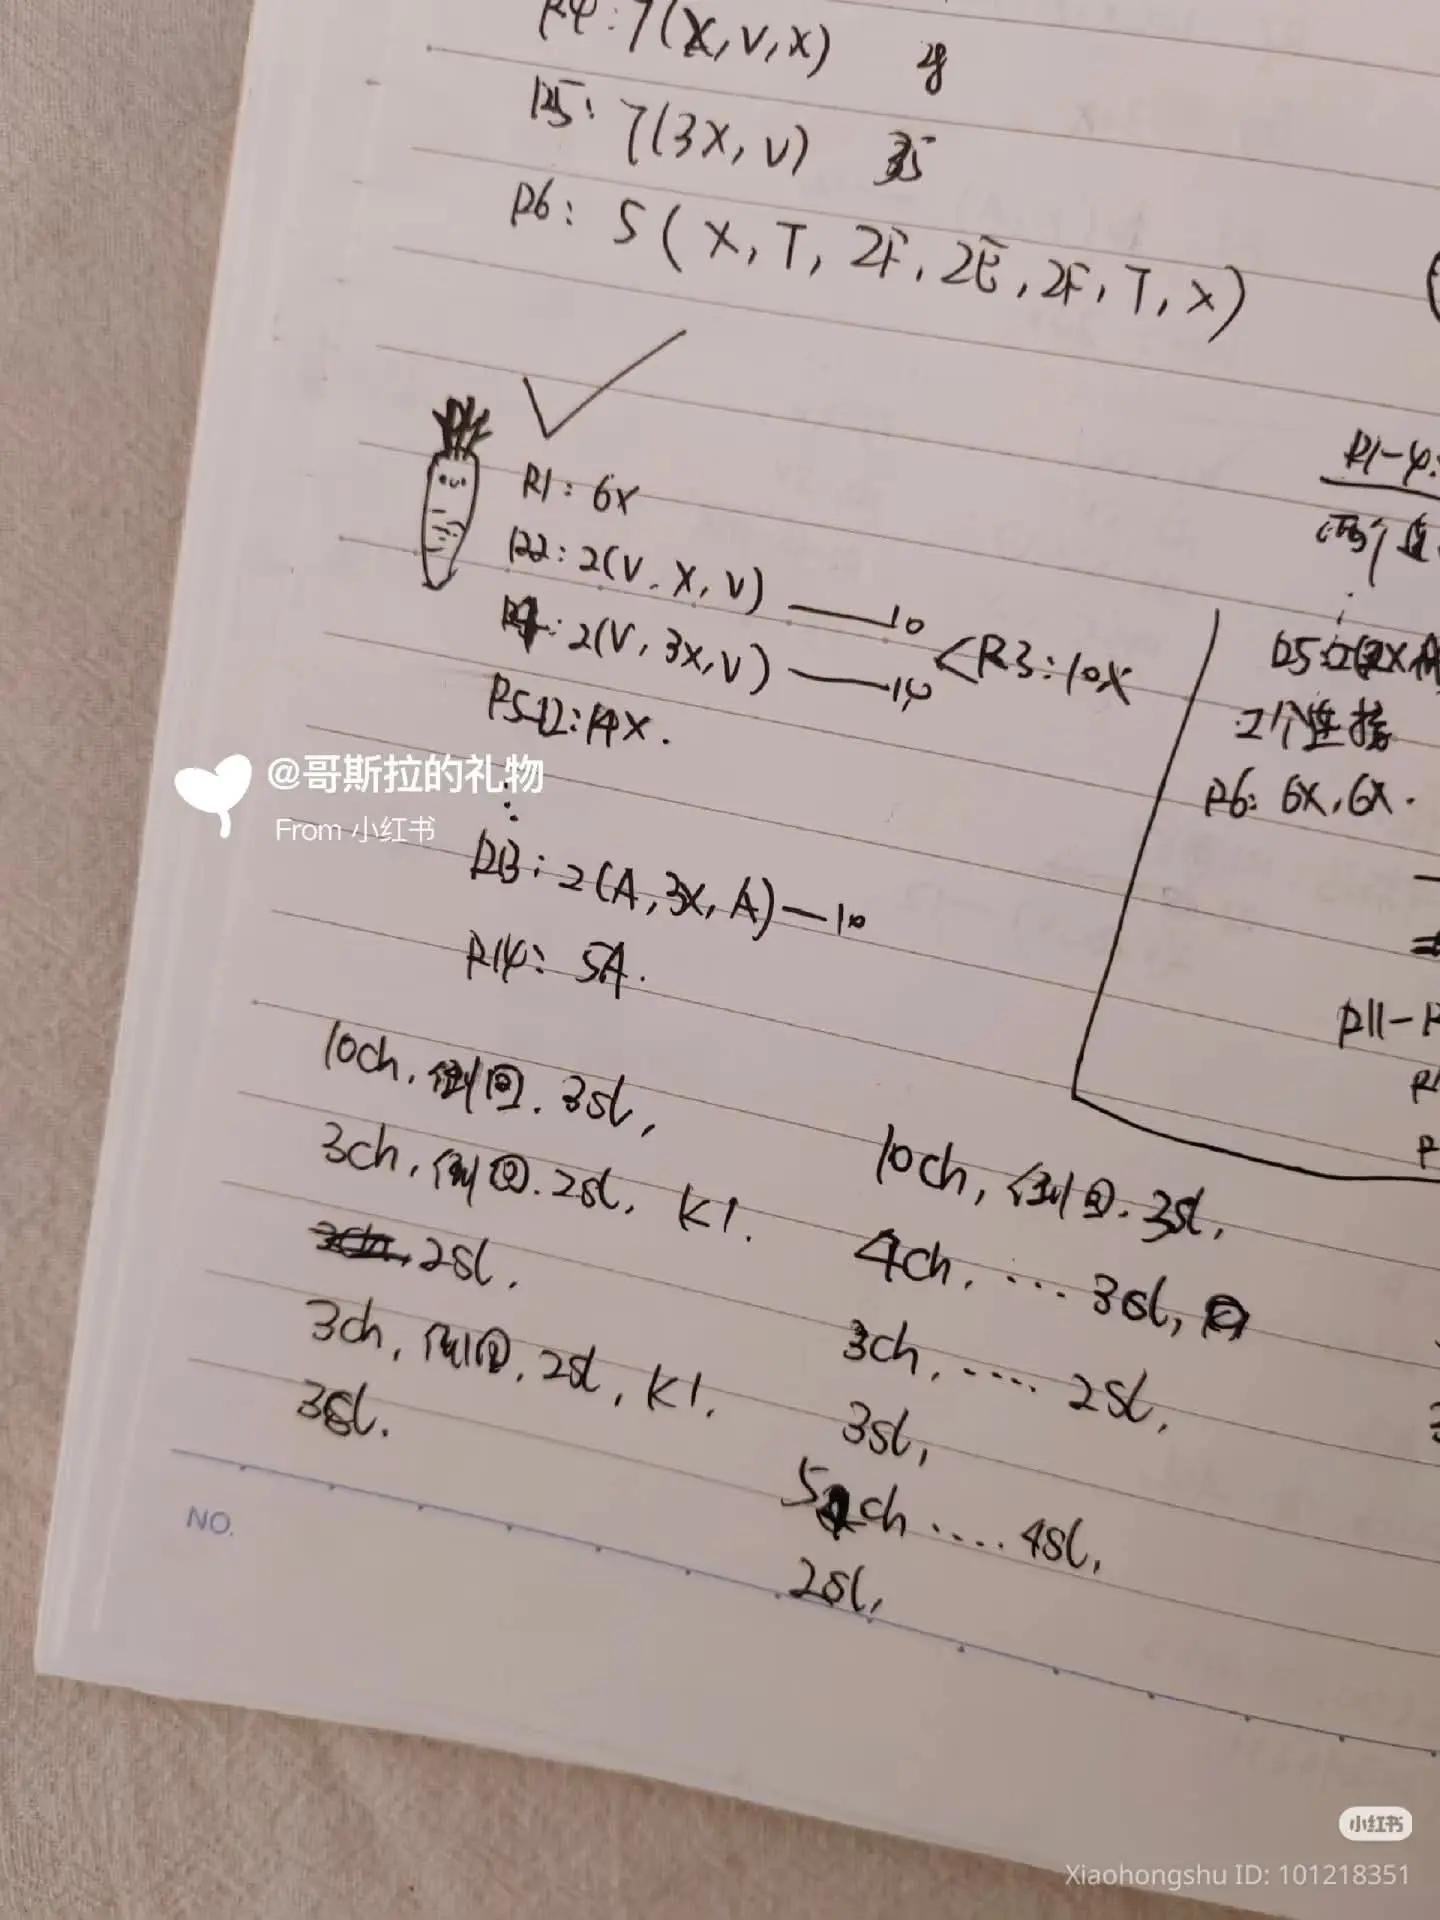 R4: 7(X, V, X) 28
R5: 7(3X, V) 35
R6: 5(X, T, 2F, 2E, 2F, T, X)
R1: 6X
R2: 2(V, X, V) —— 10
<R3: 10X
R4: 2(V, 3X, V) —— 14
R5-12: 14X.
R13: 2(A, 3X, A) — 10
R14: 5A.
10ch, 倒回. 3sl,
3ch, 倒回. 2sl, K1.
2sl.
3ch, 倒回. 2sl, K1.
3sl.
10ch, 倒回. 3sl,
4ch. ···· 3sl,
3ch. ···· 2sl,
3sl,
5ch ···· 4sl,
2sl,
R1-4:
两个
2个连接
R6: 6X, 6X.
R11-
NO.
@哥斯拉的礼物
From 小红书
小红书
Xiaohongshu ID: 101218351